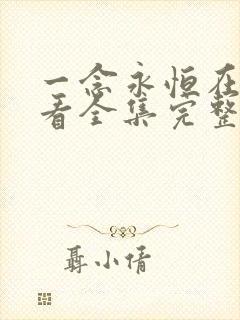 一念永恒在
看全集完整
聂小倩